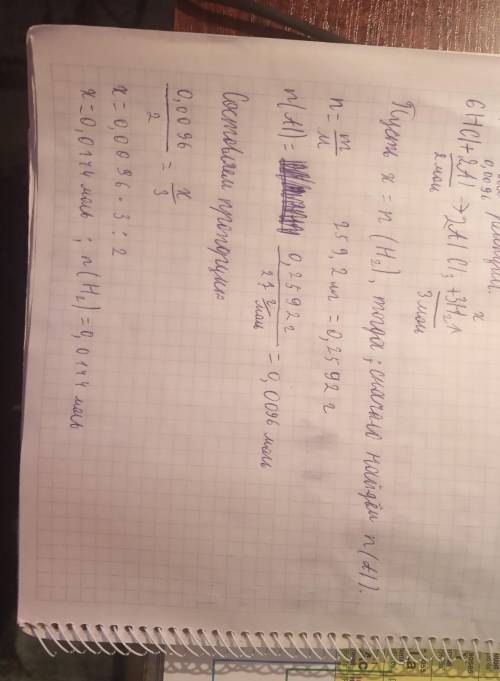 0,0096 x
6HCl + 2Al → 2AlCl₃ + 3H₂↑
2моль 3моль
Пусть x = n(H₂), тогда; сначала найдём n(Al).
n = m/M 259,2 мг = 0,2592 г
n(Al) = 0,2592 г / 27 г/моль = 0,0096 моль
Составляем пропорцию
0,0096/2 = x/3
x = 0,0096 · 3 : 2
x = 0,0144 моль ; n(H₂) = 0,0144 моль